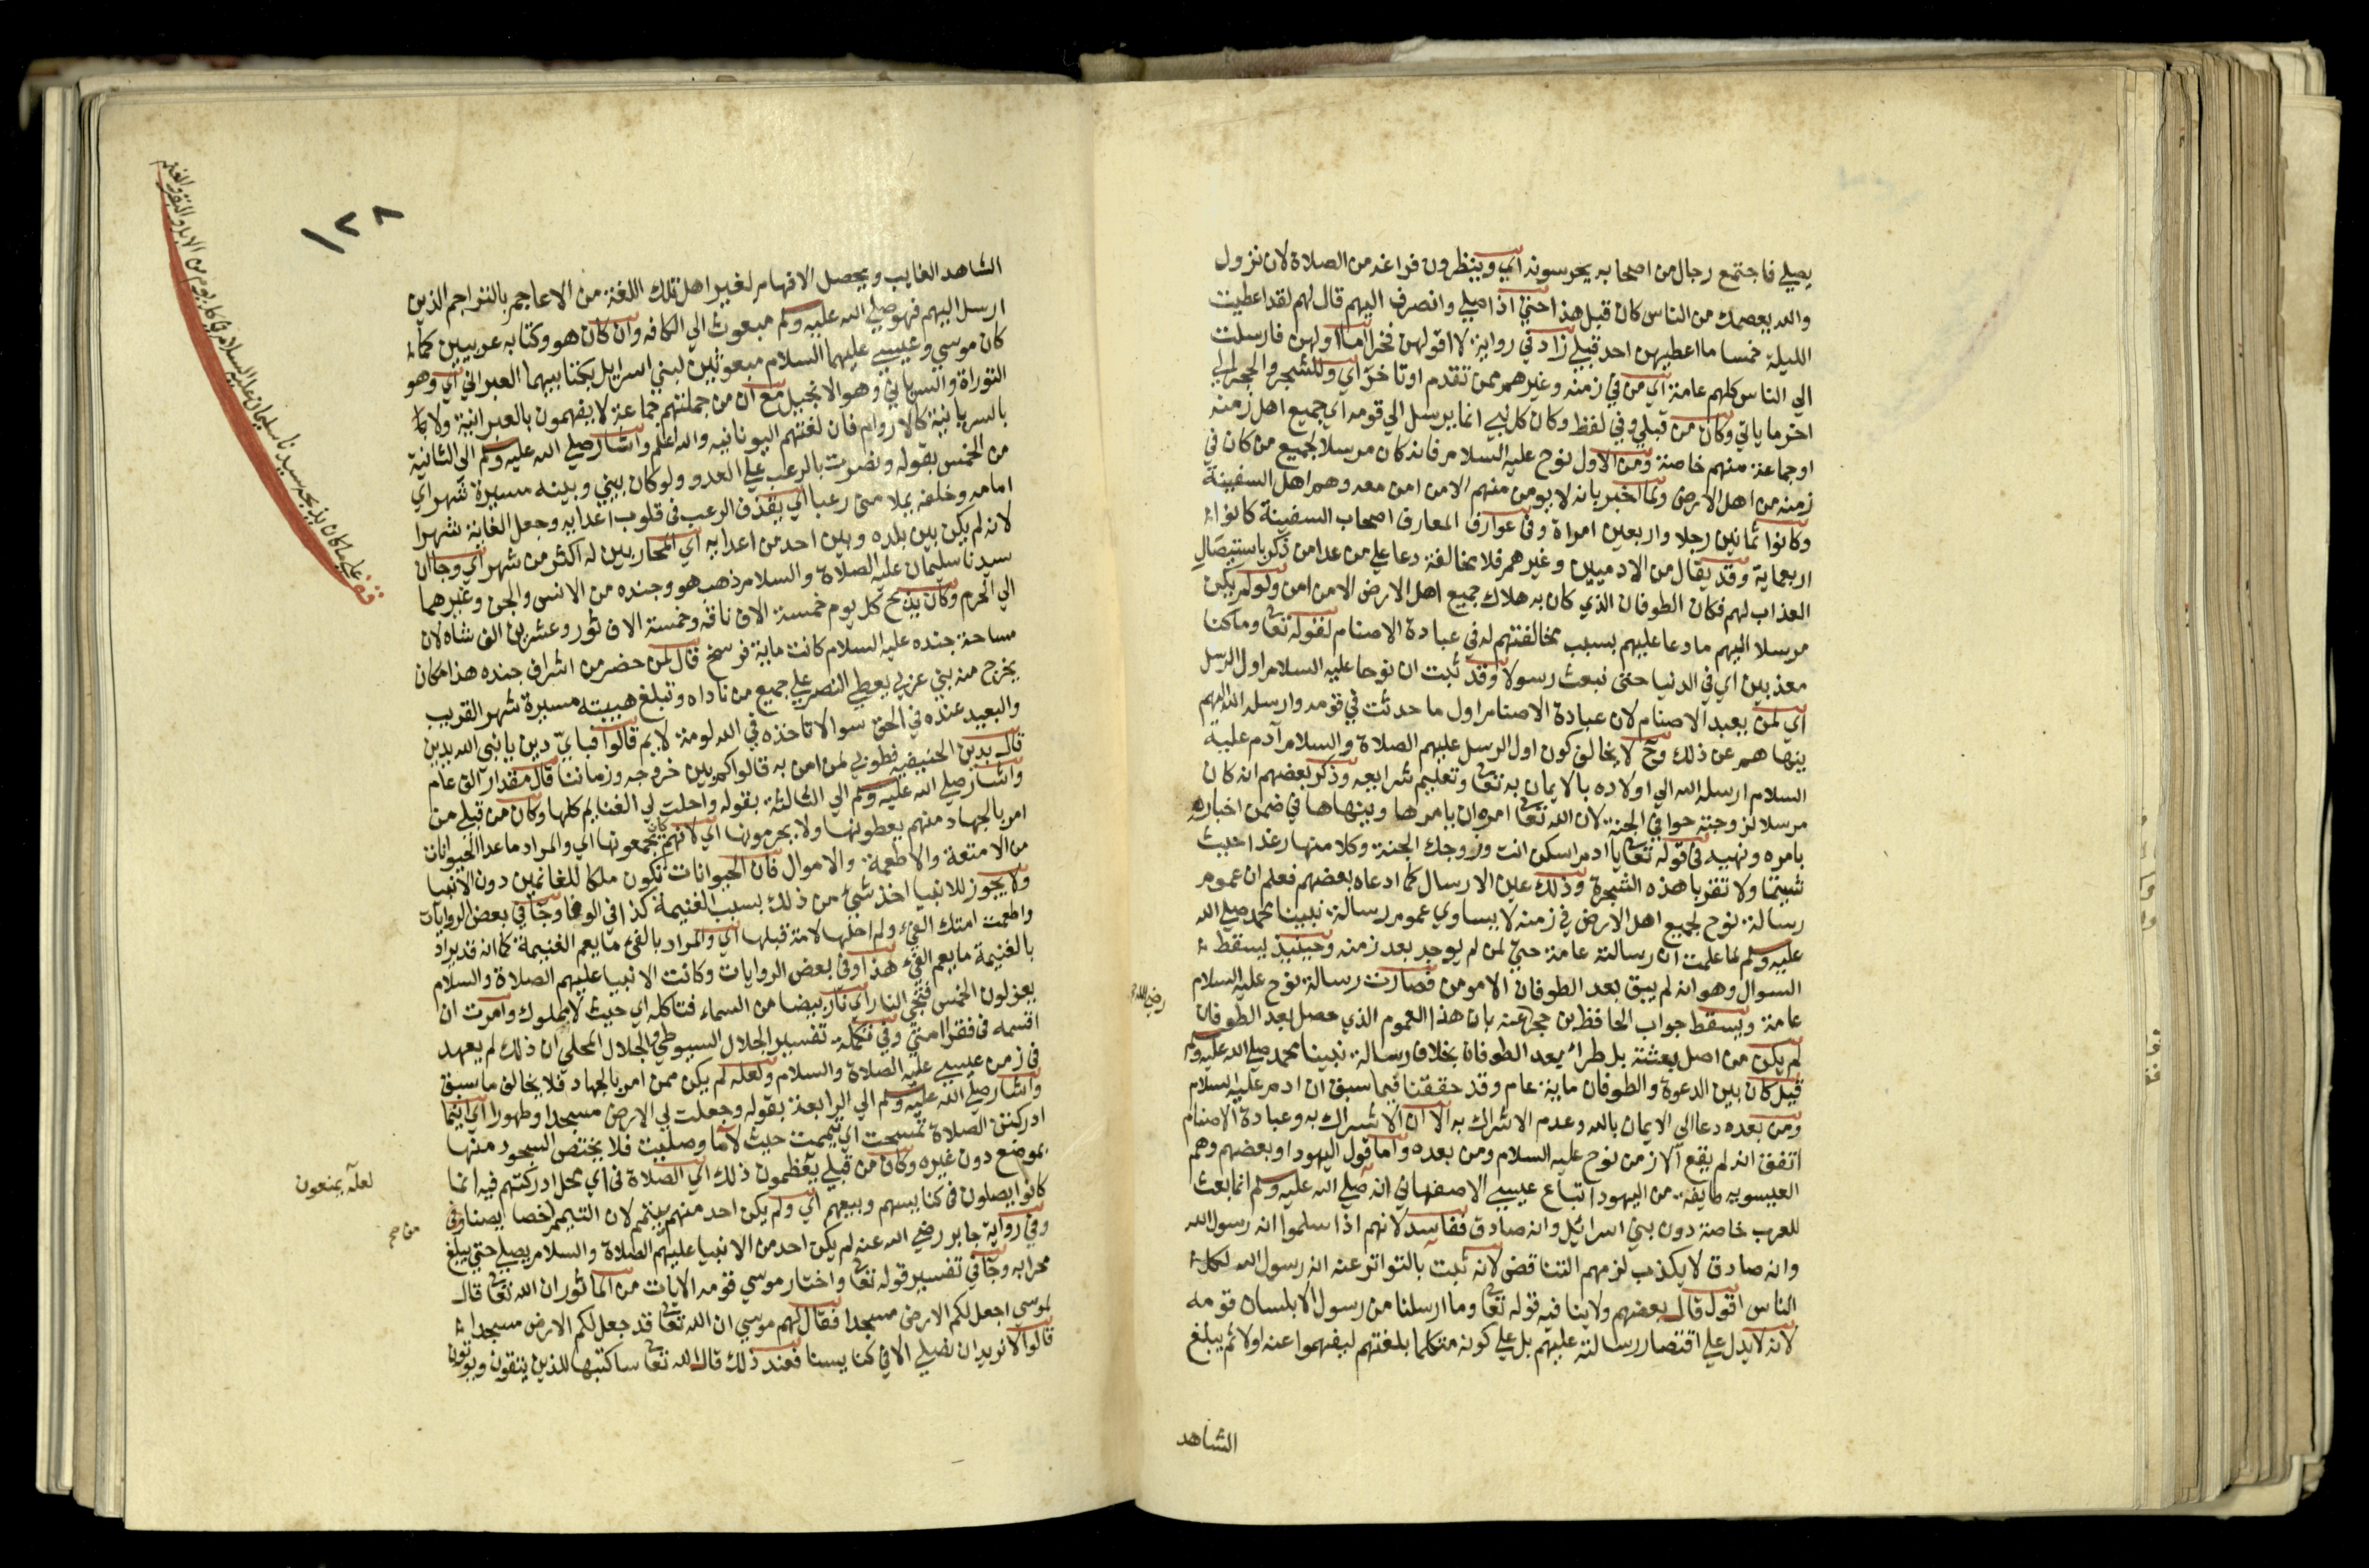 يصلي فاجتمع رجال من اصحابه يحرسونه اي وينظرون فراغه من الصلاة لان نزول
والله يعصمك من الناس كان قبل هذا حتي اذا صلي وانصرف اليهم قال لهم لقد اعطيت
الليلة خمسا ما اعطيهن احد قبلي زاد في رواية لا اقولهن فخرا اما اولهن فارسلت
الي الناس كلهم عامة اي من في زمنه وغيرهم ممن تقدم او تاخر اي وللشجر والحجر الي
اخر ما ياتي وكان من قبلي وفي لفظ وكان كل نبي انما يرسل الي قومه اي جميع اهل زمنه
او جماعة منهم خاصة ومن الاول نوح عليه السلام فانه كان مرسلا لجميع من كان في
زمنه من اهل الارض ولما اخبر بانه لا يومن منهم الا من امن معه وهم اهل السفينة
وكانوا ثمانين رجلا واربعين امراة وفي عوارف المعارف اصحاب السفينة كانوا
اربعماية وقد يقال من الادميين وغيرهم فلا مخالفة دعا علي من عدا من ذكر باستيصال
العذاب لهم فكان الطوفان الذي كان به هلاك جميع اهل الارض الا من امن ولو لم يكن
مرسلا اليهم ما دعا عليهم بسبب مخالفتهم له في عبادة الاصنام لقوله تعا وما كنا
معذبين اي في الدنيا حتي نبعث رسولا وقد ثبت ان نوحا عليه السلام اول الرسل
اي لمن يعبد الاصنام لان عبادة الاصنام اول ما حدثت في قومه وارسله الله اليهم
ينهاهم عن ذلك وح لا يخالف كون اول الرسل عليهم الصلاة والسلام آدم عليه
السلام ارسله الله الي اولاده بالايمان به تعا وتعليم شرايعه وذكر بعضهم انه كان
مرسلا لزوجته حوا في الجنة لان الله تعا امره ان يامرها وينهاها في ضمن اخباره
بامره ونهيه في قوله تعا يا ادم اسكن انت وزوجك الجنة وكلا منها رغدا حيث
شيتما ولا تقربا هذه الشجرة وذلك عين الارسال كما ادعاه بعضهم فعلم ان عموم
رسالة نوح لجميع اهل الارض في زمنه لا يساوي عموم رسالة نبينا محمد صلي الله
عليه وسلم لما علمت ان رسالته عامة حتي لمن لم يوجد بعد زمنه وحينيذ يسقط
السوال وهو انه لم يبق بعد الطوفان الا مومن فصارت رسالة نوح عليه السلام
عامة ويسقط جواب الحافظ بن حجر عنه بان هذا العموم الذي حصل بعد الطوفان
رضي الله
لم يكن من اصل بعثته بل طرا بعد الطوفان بخلاف رسالة نبينا محمد صلي الله عليه وسلم
قيل كان بين الدعوة والطوفان ماية عام وقد حققنا فيما سبق ان ادم عليه السلام
ومن بعده دعا الي الايمان بالله وعدم الاشراك به الا ان الاشراك به وعبادة الاصنام
اتفق انه لم يقع الا زمن نوح عليه السلام ومن بعده واما قول اليهود او بعضهم وهم
العيسويه طايفة من اليهود اتباع عيسي الاصفهاني انه صلي الله عليه وسلم انما بعث
للعرب خاصة دون بني اسرائيل وانه صادق ففاسد لانهم اذا سلموا انه رسول الله
وانه صادق لا يكذب لزمهم التناقض لانه ثبت بالتواتر عنه انه رسول الله لكل
الناس اقول قال بعضهم ولا ينافيه قوله تعا وما ارسلنا من رسول الا بلسان قومه
لانه لا يدل علي اقتصار رسالته عليهم بل علي كونه متكلما بلغتهم ليفهموا عنه اولا ثم يبلغ
الشاهد
١٢٨
الشاهد الغايب ويحصل الافهام لغير اهل تلك اللغة من الاعاجم بالتراجم الذين
ارسل اليهم فهو صلي الله عليه وسلم مبعوث الي الكافه وان كان هو وكتابه عربيين كما
كان موسي وعيسي عليهما السلام مبعوثين لبني اسرايل بكتابيهما العبراني اي وهو
التوراة والسرياني وهو الانجيل مع ان من جملتهم جماعة لا يفهمون بالعبرانية ولا
بالسريانية كالاروام فان لغتهم اليونانيه والله اعلم واشار صلي الله عليه وسلم الي الثانية
من الخمس بقوله ونصرت بالرعب علي العدو ولو كان بيني وبينه مسيرة شهر اي
امامه وخلفه يملا مني رعبا اي يقذف الرعب في قلوب اعدايه وجعل الغاية شهرا
لانه لم يكن بين بلده وبين احد من اعدايه اي المحاربين له اكثر من شهر اي وجا ان
سيدنا سليمان عليه الصلاة والسلام ذهب هو وجنده من الانس والجن وغيرهما
الي الحرم وكان يذبح كل يوم خمسة الاف ناقه وخمسة الاف ثور وعشرين الف شاه لان
مساحة جنده عليه السلام كانت ماية فرسخ قال لمن حضر من اشراف جنده هذا مكان
يخرج منه نبي عربي يعطي النصر علي جميع من ناداه وتبلغ هيبته مسيرة شهر القريب
والبعيد عنده في الحق سوا لا تاخذه في الله لومة لايم قالوا فباي دين يا نبي الله يدين
قال بدين الحنيفيه فطوبي لمن امن به قالوا كم بين خروجه وزماننا قال مقدار الف عام
واشار صلي الله عليه وسلم الي الثالثة بقوله واحلت لي الغنايم كلها وكان من قبلي من
امر بالجهاد منهم يعطونها ولا يحرمونها اي لانهم كانوا يجمعونها اي والمراد ما عدا الحيوانات
من الامتعة والاطعمة والاموال فان الحيوانات تكون ملكا للغانمين دون الانبيا
ولا يجوز للانبيا اخذ شي من ذلك بسبب الغنيمة كذا في الوفا وجا في بعض الروايات
واطعمت امتك الفي ولم احلها لامة قبلها اي والمراد بالفي ما يعم الغنيمة كما انه قد يراد
بالغنيمة ما يعم الفي هذا وفي بعض الروايات وكانت الانبيا عليهم الصلاة والسلام
يعزلون الخمس فتجي النار اي نار بيضا من السماء فتاكله اي حيث لا غلول وامرت ان
اقسمه في فقرا امتي وفي تكملة تفسير الجلال السيوطي والجلال المحلي ان ذلك لم يعهد
في زمن عيسي عليه الصلاة والسلام ولعله لم يكن ممن امر بالجهاد فلا يخالف ما سبق
واشار صلي الله عليه وسلم الي الرابعة بقوله وجعلت لي الارض مسجدا وطهورا اي اينما
ادركتني الصلاة تمسحت اي تيممت حيث لا ما وصليت فلا يختص السجود منها
بموضع دون غيره وكان من قبلي يعظمون ذلك اي الصلاة في اي محل ادركتهم فيه انما
لعله يمنعون
كانوا يصلون في كنايسهم وبيعهم اي ولم يكن احد منهم يتيمم لان التيمم من خصايصنا وفي
وفي رواية جابر رضي الله عنه لم يكن احد من الانبيا عليهم الصلاة والسلام يصلي حتي يبلغ
محرابه وجا في تفسير قوله تعا واختار موسي قومه الايات من الماثور ان الله تعا قال
لموسي اجعل لكم الارض مسجدا فقال لهم موسي ان الله تعا قد جعل لكم الارض مسجدا
قالوا لا نريد ان نصلي الا في كنايسنا فعند ذلك قال الله تعا ساكتبها للذين يتقون ويوتون
قف علي ما كان يذبحه سيدنا سليمان عليه السلام في كل يوم من الابل والبقر والغنم